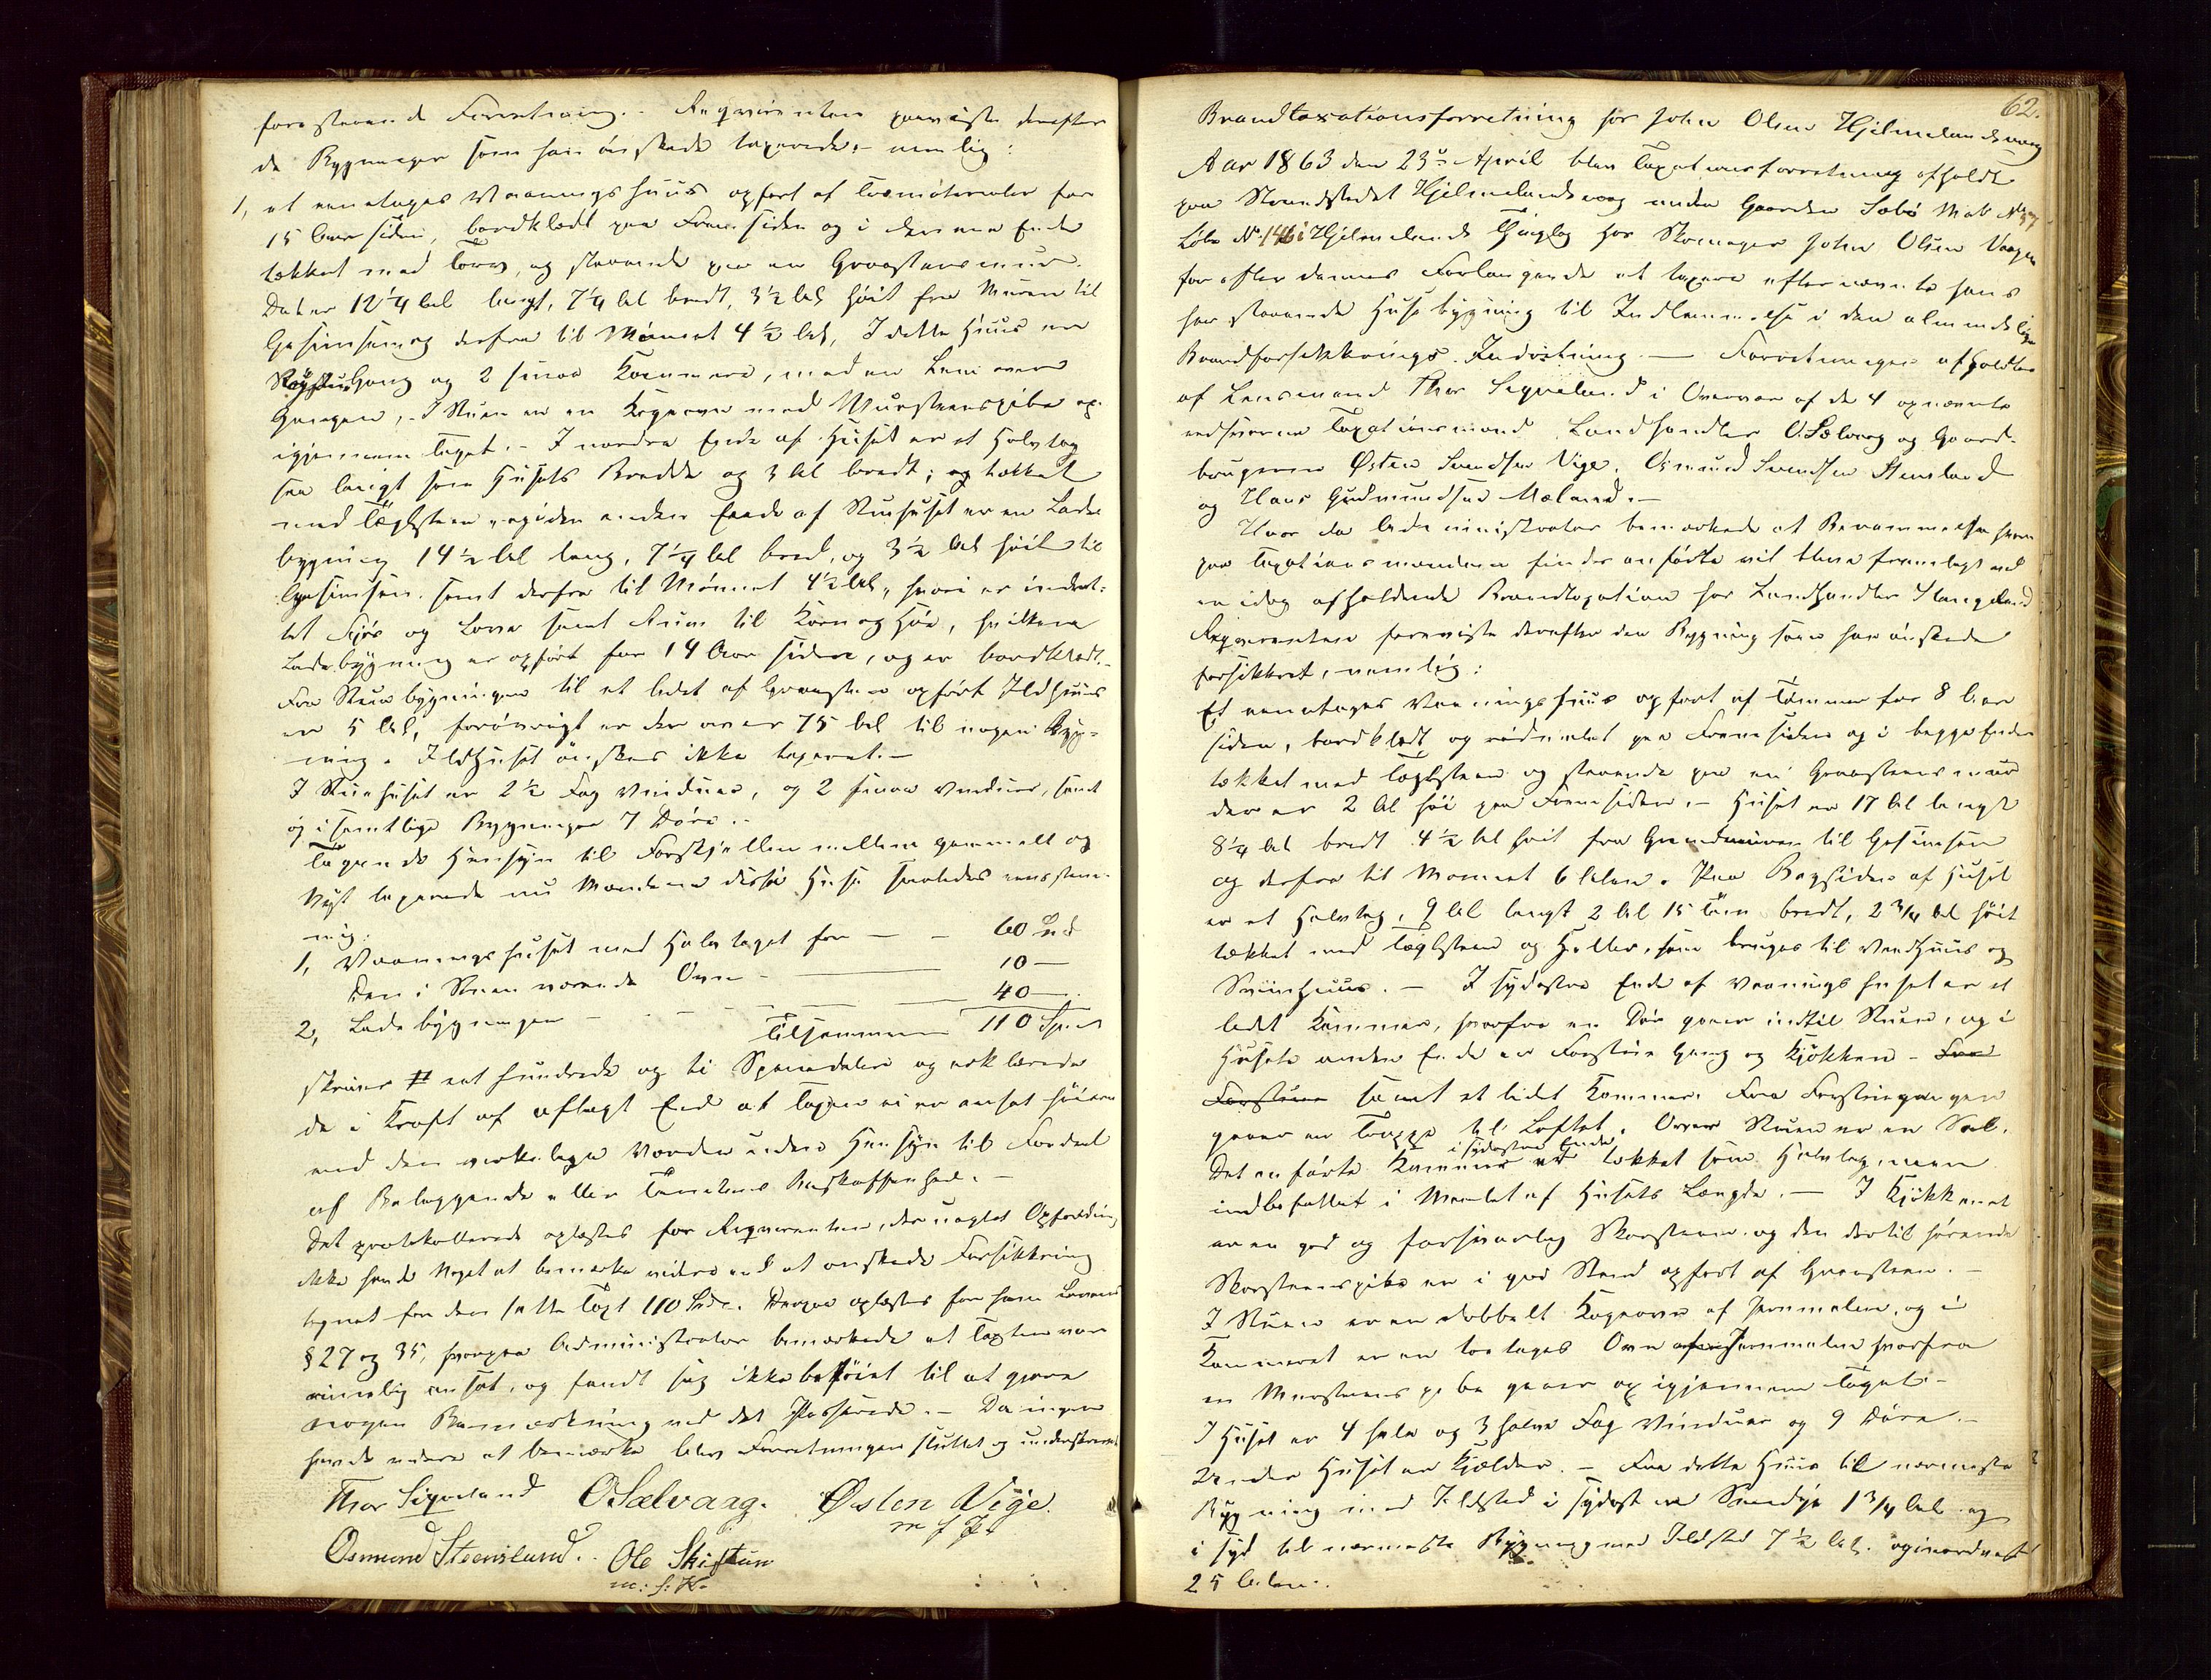 forestaaende Forretning. Reqvirenten paaviste derefter
de Bygninger som han önskede taxerede, nemlig:
1, et eenetages Vaaningshuus opfört af Træmaterialer for
15 Aar siden, bordklædt paa Fremsiden og i den ene Ende
tækket med Torv, og staaende paa en Graasteensmuur.
Det er 12 1/4 Al langt, 7 1/4 Al bredt, 3 1/2 Al höit fra Muren til
Gesimsen og derfra til Mönnet 4 1/2 Al, I dette Huus er
Gang og 2 smaa Kammere, med en Lem over
Gangen, I Stuen er en Kogeovn med Muursteenspibe op
igjennem Taget. I nordre Ende af Huset er et Halvtag
saa langt som Husets Bredde og 3 Al bredt; og tækket
med Tæglsteen, og i den anden Ende af Stuehuset er en Lade
bygning 14 1/2 Al lang, 7 1/4 Al bred, og 3 1/2 Al höit til
Gesimsen samt derfra til Mönnet 4 1/2 Al, hvori er indret-
tet Fjös og Love samt Rum til Korn og Höe, hvilken
Ladebygning er opfört for 14 Aar siden, og er bordklædt.
Fra Stuebygningen til et lidet af Graasteen opfört Ildhuus
er 5 Al, forövrigt er der over 75 Al til nogen Byg-
ning. Ildhuset önskes ikke taxeret.
I Stuehuset er 2 1/2 Fag Vinduer, og 2 smaa Vinduer, samt
og i samtlige Bygninger 7 Döre.
Tagende Hensyn til Forskjellen mellem gammelt og
Nyt taxerede nu Mændene disse Huse saaledes eensstem-
mig:
1, Vaaningshuset med Halvtaget for — — 60 Spd
Den i Stuen værende Ovn — 10 —
2, Ladebygningen — 40 —
Tilsammen 110 Spd
skriver et hundrede og ti Speciedaler og erklærede
de i Kraft af aflagt Eed at Taxten ei er ansat höiere
end den virkelige Værdie uden Hensyn til Fordeel
af Beliggende eller Tomtens Beskaffenhed.
Det protokollerede oplæstes for Reqvirenten, der uagtet Opfordring
ikke havde Noget at bemærke videre end at önskede Forsikkring
tegnet for den satte Taxt 110 Spd. Derpaa oplæstes for ham Lovens
§ 27 og 35, hvorpaa Administrator bemærkede at Taxten var
rimelig ansat, og fandt sig ikke beföiet til at gjöre
nogen Bemærkning ved det Passerede. Da ingen
havde videre at bemærke blev Forretningen sluttet og underskrevet
Thor Sigveland OSælvaag. Østen Vige.
m f P
Osmund Steensland. Ole Skiftun
m: f: P.
62.
Brandtaxationsforretning for John Olsen Hjelmelandsvaag
Aar 1863 den 23de April blev Taxationsforretning afholdt
paa Strandstedet Hjelmelandsvaag under Gaarden Sæbö Matr No 57
Löbe No 146 i Hjelmelands Thinglag hos Skomager John Olsen Vaagen
for efter dennes Forlangende at taxere efternævnte hans
her staaende Husebygning til Indlemmelse i den almindelige
Brandforsikkrings Indretning. — Forretningen afholdtes
af Lensmand Thor Sigveland i Overvær af de 4 opnævnte
edsvorne Taxationsmænd, Landhandler O. Sælvaag og Gaard-
brugerne Østen Svendsen Vige, Osmund Svendsen Stensland
og Hans Gudmundsen Mæland.
Hvor da Administrator bemærkede at Berammelsen hvor
paa Taxationsmændene findes anförte vil blive fremlagt ved
en idag afholdende Brandtaxation hos Landhandler
Reqvirenten foreviste derefter den Bygning som han önskede
forsikkret, nemlig:
Et eenetages Vaaningshuus opfört af Tömmer for 8 Aar
siden, bordklædt og rödmalet paa Fremsiden og i begge Ender
tækket med Tæglsteen og staaende paa en Graasteensmuur
der er 2 Al höi paa Fremsiden. Huset er 17 Al langt
8 1/4 Al bredt 4 1/2 Al höit fra Grundmuren til Gesimsen
og derfra til Mönnet 6 Alen. Paa Bagsiden af Huset
er et Halvtag, 9 Al langt 2 Al 15 Tom bredt, 2 3/4 Al höit
tækket med Tæglsteen og Heller, som bruges til Vedhuus og
Sviinhuus. — I sydöstre Ende af Vaaningshuset er et
lidet Kammer, hvorfra en Dör gaaer ind til Stuen, og i
Husets anden Ende er Forstue Gang og Kjökken — Fra
Forstuen samt et lidet Kammer. Fra Forstuegangen
gaaer en Trappe til Loftet. Over Stuen er en Sal.
i sydöstre Ende
Det anförte Kammer er tækket som Halvtag, men
indbefattet i Maalet af Husets Længde. — I Kjökkenet
er en god og forsvarlig Skorsteen og den dertil hörende
Skorsteenspibe er i god Stand opfört af Graasteen.
I Stuen er en dobbelt Kogeovn af Jernmalm, og i
Kammeret er en toetages Ovn af Jernmalm hvorfra
en Muursteenspibe gaaer op igjennem Taget.
I Huset er 4 hele og 3 halve Fag Vinduer og 9 Döre.
Under Huset er Kjælder. — Fra dette Huus til nærmeste
Bygning med Ildsted i sydöst 1 3/4 Al og
i syd til nærmeste Bygning med Ildsted 7 1/2 Al. og i nordvest
25 Alen.